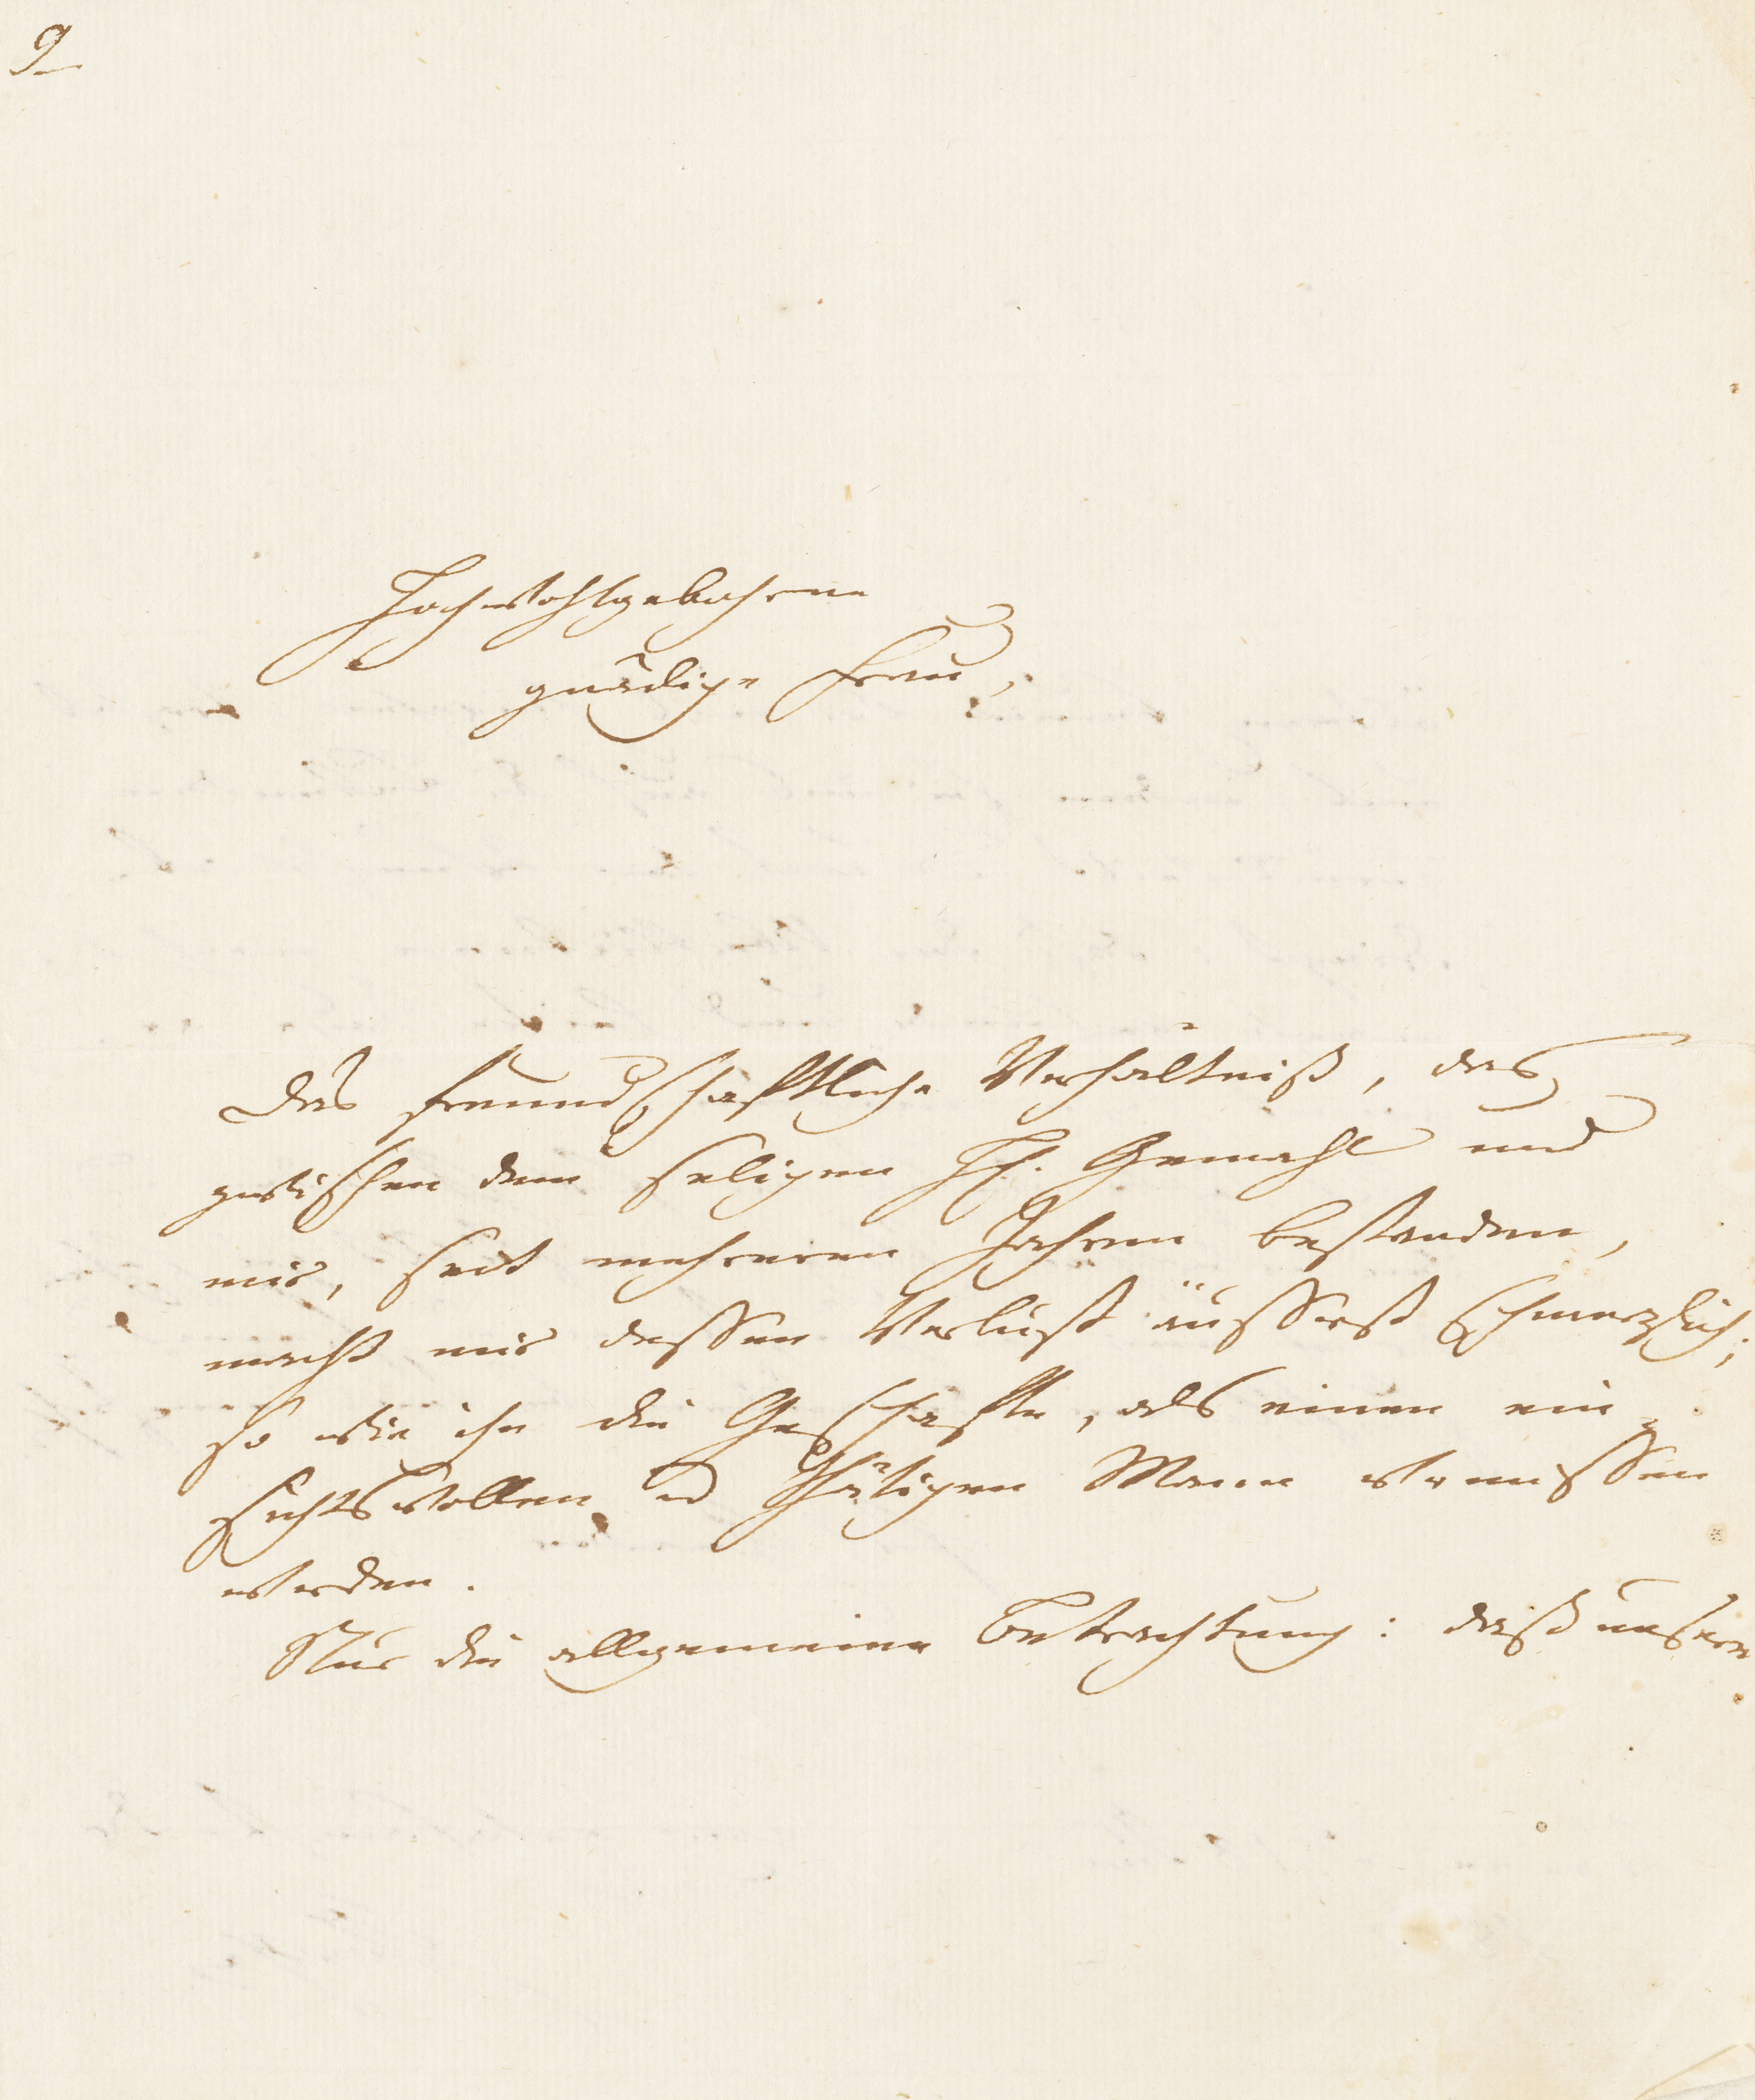 9
Hochwohlgebohrne
gnädige Frau,
Das freundschaftliche Verhältniß, das
zwischen dem seligen H. Gemahl und
mir, seit mehreren Jahren bestanden,
macht mir dessen Verlust äusserst schmerzlich;
so wie ihn die Geschäfte, als einen ein-
sichtsvollen u thätigen Mann vermissen
werden.
Nur die allgemeine Betrachtung: daß unsere